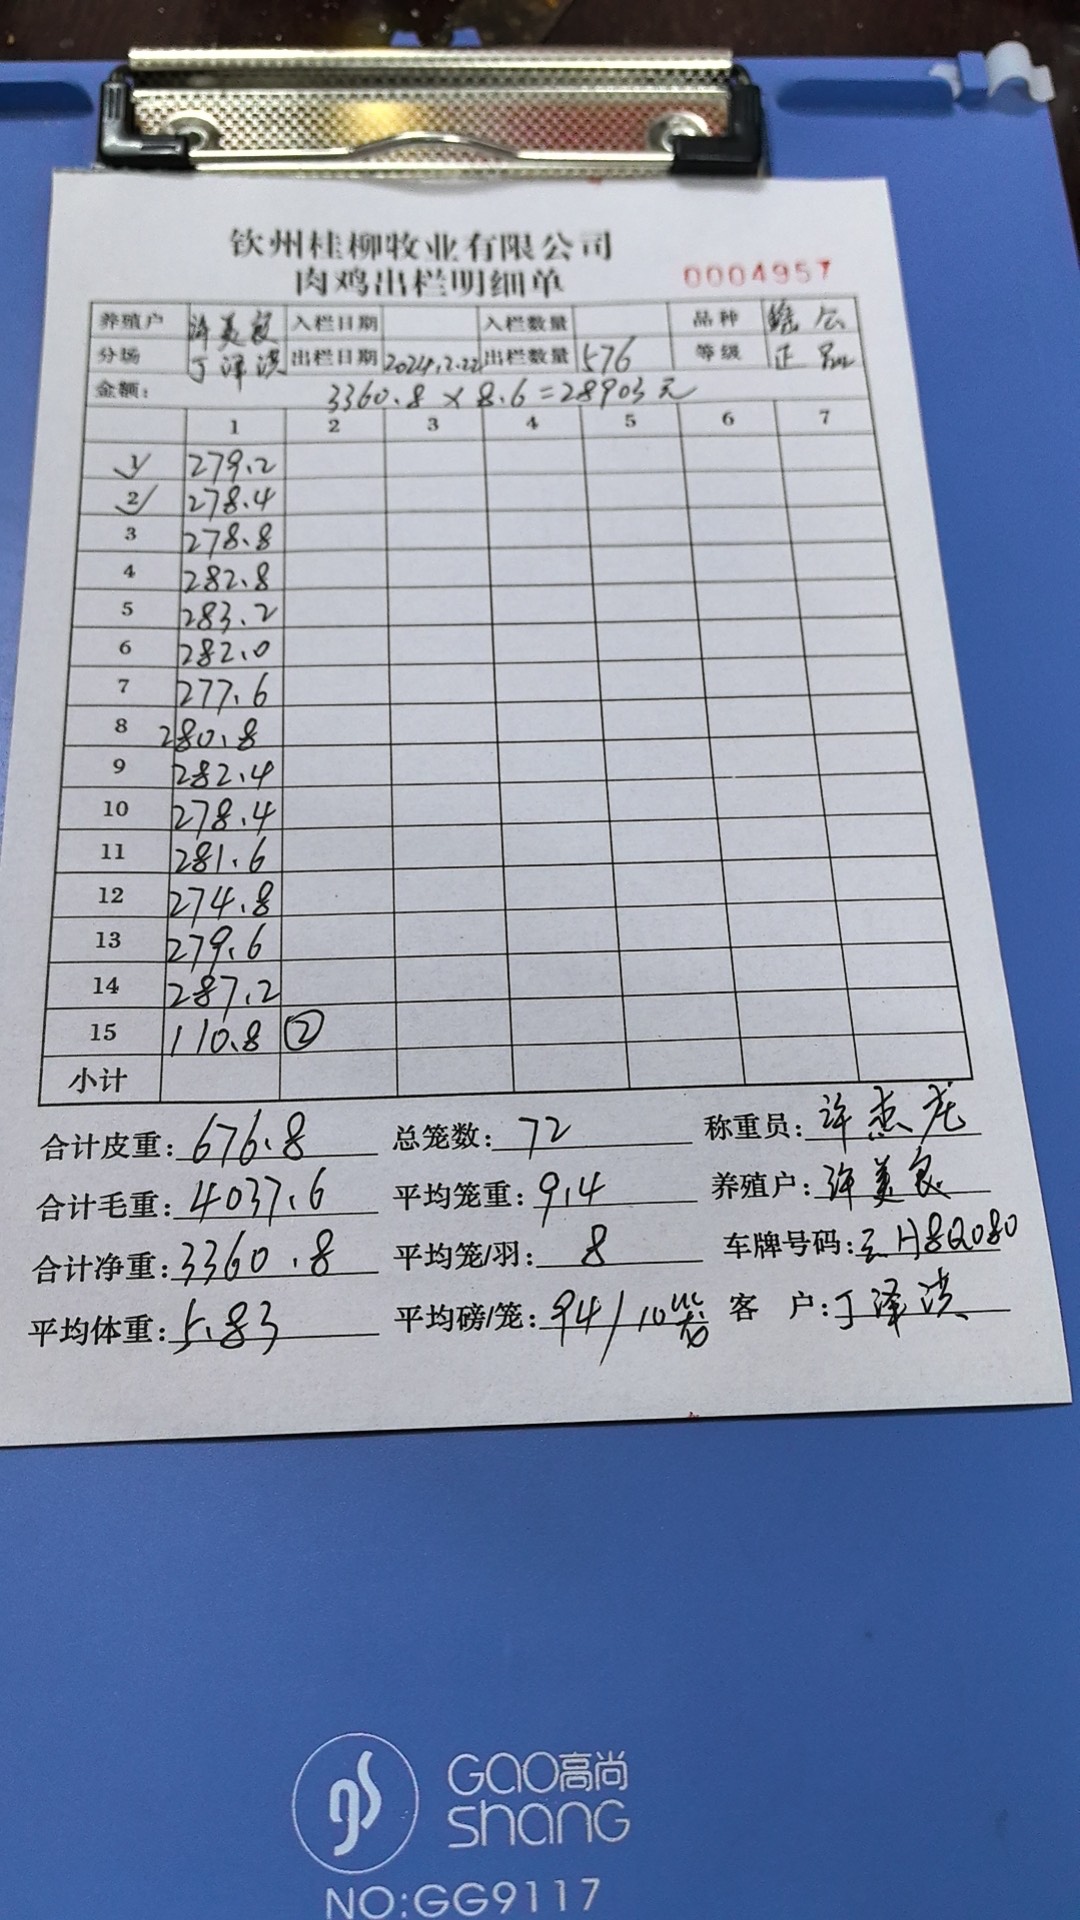 钦州桂柳牧业有限公司
肉鸡出栏明细单 0004957
养殖户 许美良 入栏日期 入栏数量 品种
分场 丁泽洪 出栏日期 2024.2.22 出栏数量 576 等级 正
金额: 3360.8 × 8.6 = 28903 元
1 2 3 4 5 6 7
1 279.2
2 278.4
3 278.8
4 282.8
5 283.2
6 282.0
7 277.6
8 280.8
9 282.4
10 278.4
11 281.6
12 274.8
13 279.6
14 287.2
15 110.8 ②
小计
合计皮重: 676.8 总笼数: 72 称重员: 许杰龙
合计毛重: 4037.6 平均笼重: 9.4 养殖户: 许美良
合计净重: 3360.8 平均笼/羽: 8 车牌号码: 云H8Q080
平均体重: 5.83 平均磅/笼: 94/10 客 户: 丁泽洪
GAO高尚
SHANG
NO:GG9117